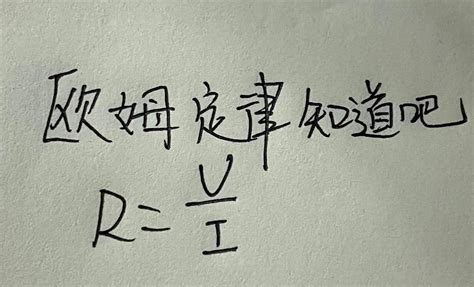 欧姆定律知道吧
R=U/I